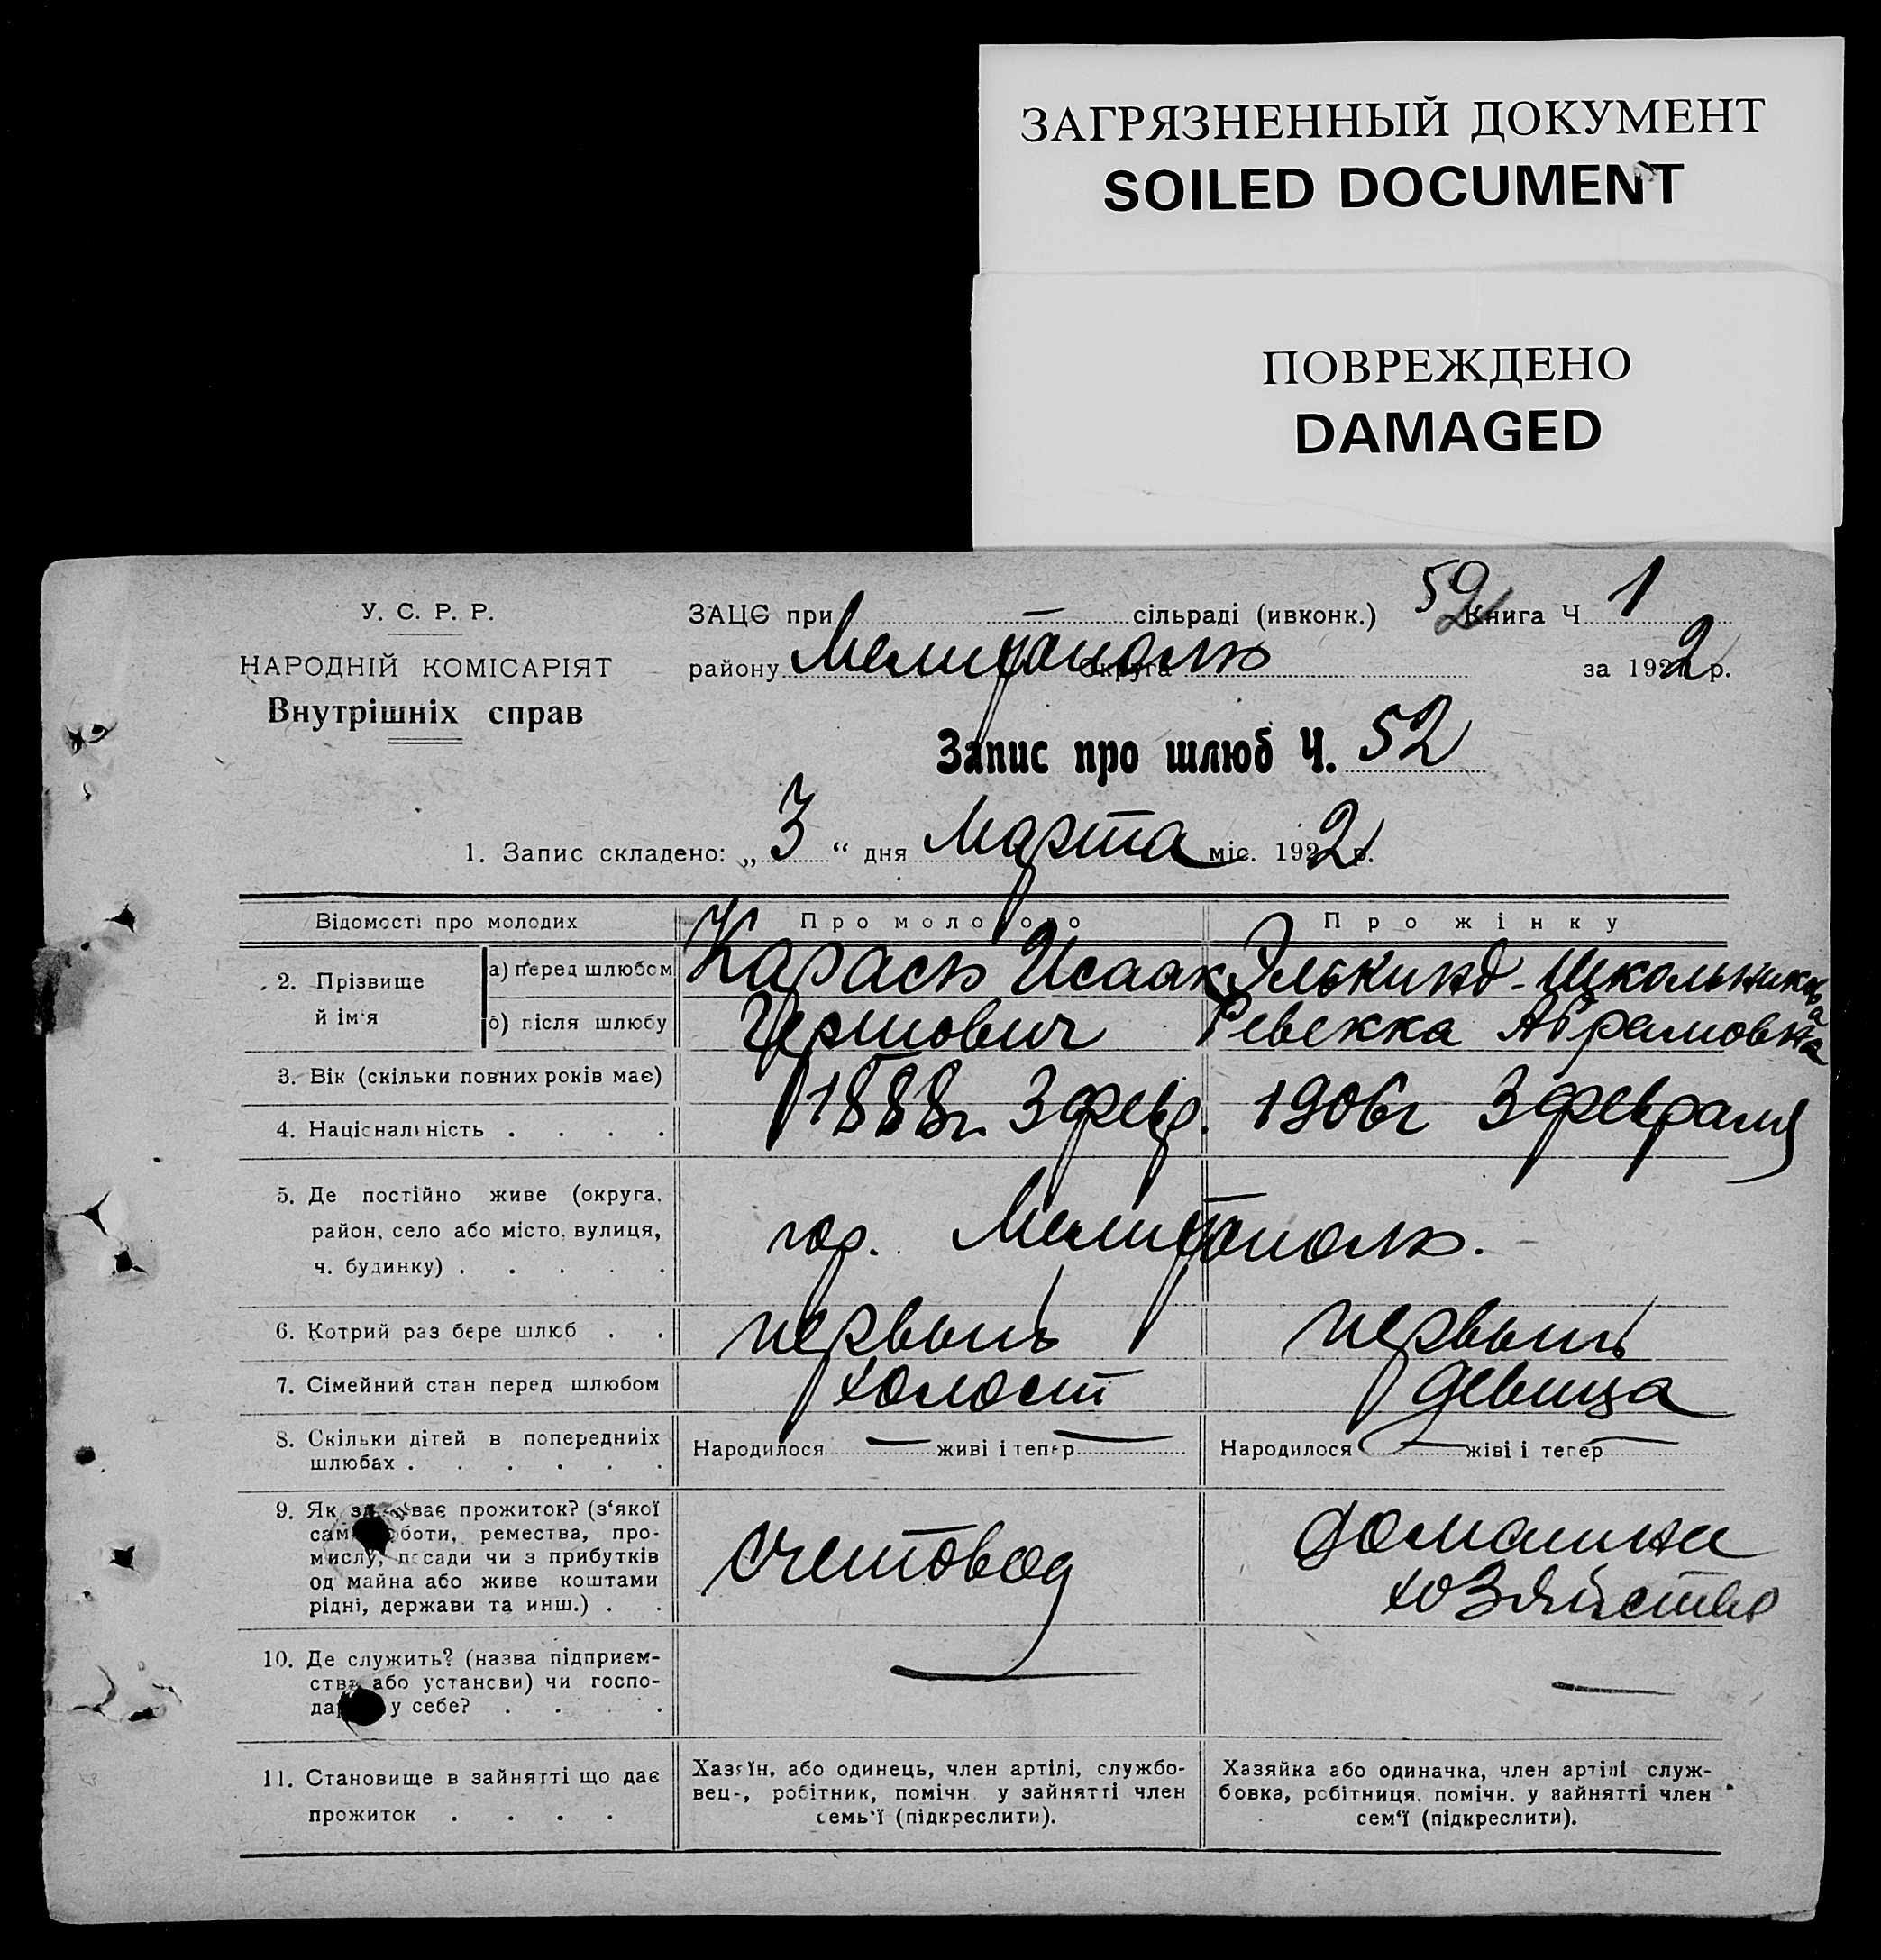 ЗАГРЯЗНЕННЫЙ ДОКУМЕНТ
SOILED DOCUMENT
ПОВРЕЖДЕНО
DAMAGED
У. С. Р. Р.
НАРОДНІЙ КОМІСАРІЯТ
Внутрішніх справ
ЗАЦС при — сільраді (ивконк.) 52 Книга Ч 1
району Мелитополь округа за 1922 р.
Запис про шлюб Ч. 52
1. Запис складено: „3“ дня Марта міс. 1922 р.
Відомості про молодих
Про молодого
Про жінку
2. Прізвище й ім'я
а) перед шлюбом
б) після шлюбу
Карась Исаак
Гершович
Элькинд-Школьникова
Ревекка Абрамовна
3. Вік (скільки повних років має)
4. Національність . . . .
1888г. 3 февр.
1906г 3 февраля
5. Де постійно живе (округа,
район, село або місто, вулиця,
ч. будинку) . . . . .
гор. Мелитополь.
6. Котрий раз бере шлюб . .
первый
первый
7. Сімейний стан перед шлюбом
холост
девица
8. Скільки дітей в попередниіх
шлюбах . . . . . .
Народилося — живі і тепер —
Народилося — жіві і тепер —
9. Як здобуває прожиток? (з'якої
саме роботи, ремества, про-
мислу, посади чи з прибутків
од майна або живе коштами
рідні, держави та инш.) . .
счетовод
домашнее
хозяйство
10. Де служить? (назва підприєм-
ства або установи) чи госпо-
дарює у себе? . . . .
—
—
11. Становище в зайнятті що дає
прожиток . . . .
Хазяїн, або одинець, член артілі, службо-
вець, робітник, помічн. у зайнятті член
семь'ї (підкреслити).
Хазяйка або одиначка, член артілі служ-
бовка, робітниця, помічн. у зайнятті член
сем'ї (підкреслити).